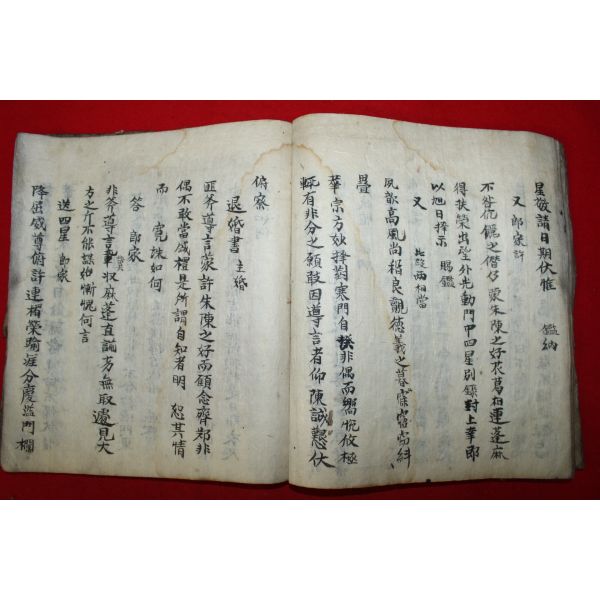 星敬請日期伏惟 鑑納
又 郎家許
不啻伉儷之偕 蒙朱陳之好衣葛相連蓬麻
得扶榮出望外光動門中四星別錄對上幸郎
以旭日擇示 賜鑑
又 此段兩相當
夙歆高風尚稽良覿德義之慕 寤寐
疊
華宗方妙擇對寒門自揆非偶而嚮悅攸極
輒有非分之願敢因導言者仰陳誠懇伏
俯察
退婚書 主婚
匪斧導言蒙許朱陳之好而顧念齊鄭非
偶不敢當盛禮是所謂自知者明 恕其情
而 寬誅如何
答 郎家
非斧導言 葑麻蓬直誠方無取遽見大
方之斤不能謀始慚愧何言
送四星 郎家
降屈威尊俯許連楣榮踰涯分慶溢門欄